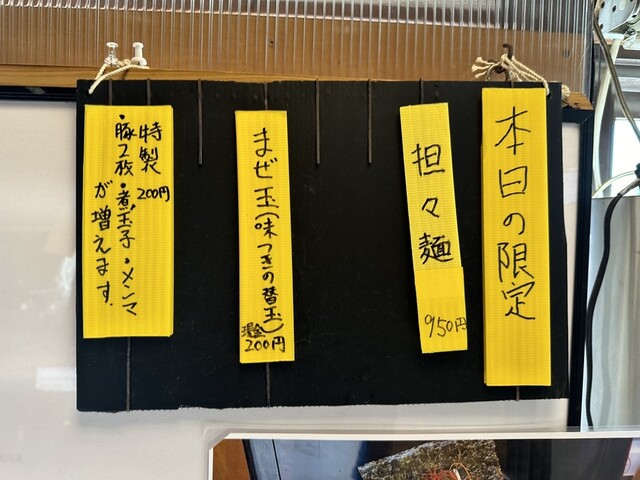 本日の限定
担々麺
950円
まぜ玉(味つきの替玉)
現金
200円
特製 200円
・豚2枚・煮玉子・メンマ
が増えます.